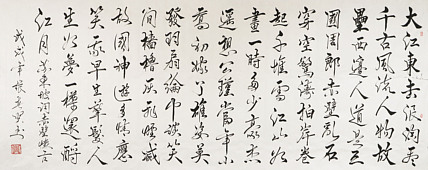 大江東去浪淘盡
千古風流人物故
壘西邊人道是三
國周郎赤壁亂石
穿空驚濤拍岸卷
起千堆雪江山如
畫一時多少豪杰
遙想公瑾當年小
喬初嫁了雄姿英
發羽扇綸巾談笑
間檣櫓灰飛煙滅
故國神遊多情應
笑我早生華髮人
生如夢一樽還酹
江月蘇東坡詞赤壁懷古
戊戌年